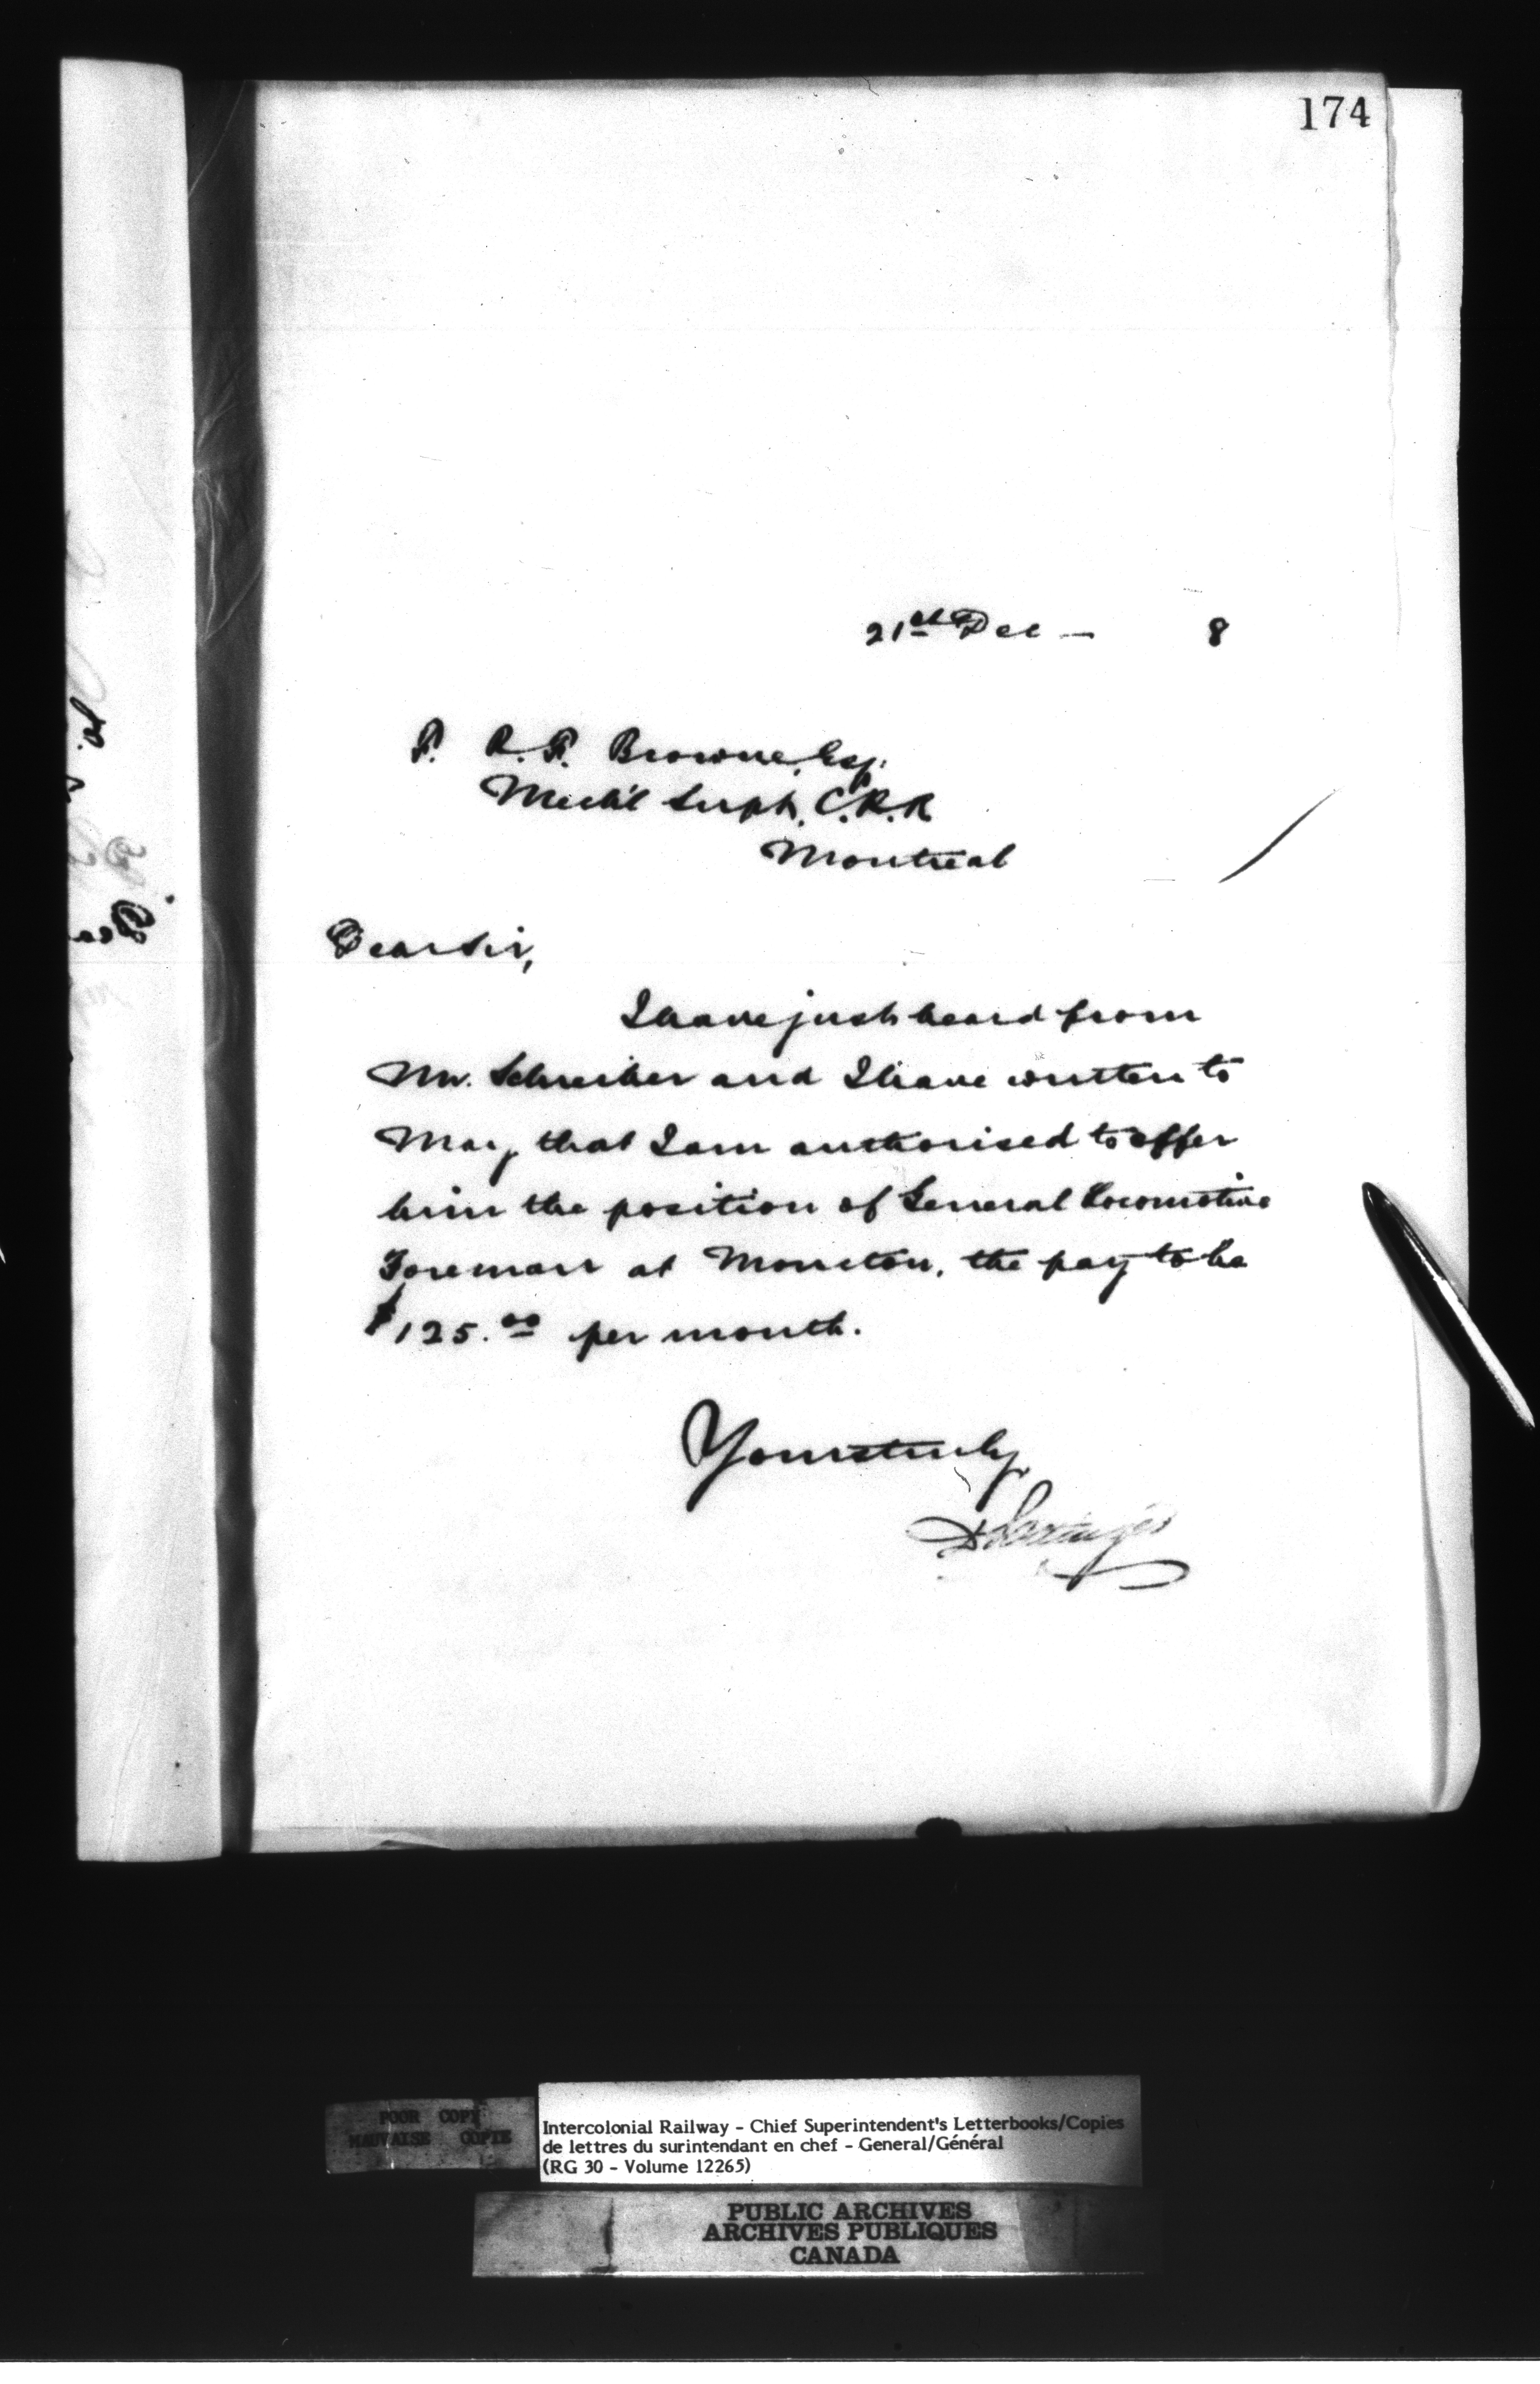 174
21st Dec — 8
P. R. F. Browne, Esq.
Mech'l Supt. C.P.R.
Montreal
Dear Sir,
I have just heard from
Mr. Schreiber and I have written to
May, that I am authorised to offer
him the position of General Locomotive
Foreman at Moncton, the pay to be
$125.00 per month.
Yours truly,
D Pottinger
POOR COPY
MAUVAISE COPIE
Intercolonial Railway - Chief Superintendent's Letterbooks/Copies
de lettres du surintendant en chef - General/Général
(RG 30 - Volume 12265)
PUBLIC ARCHIVES
ARCHIVES PUBLIQUES
CANADA